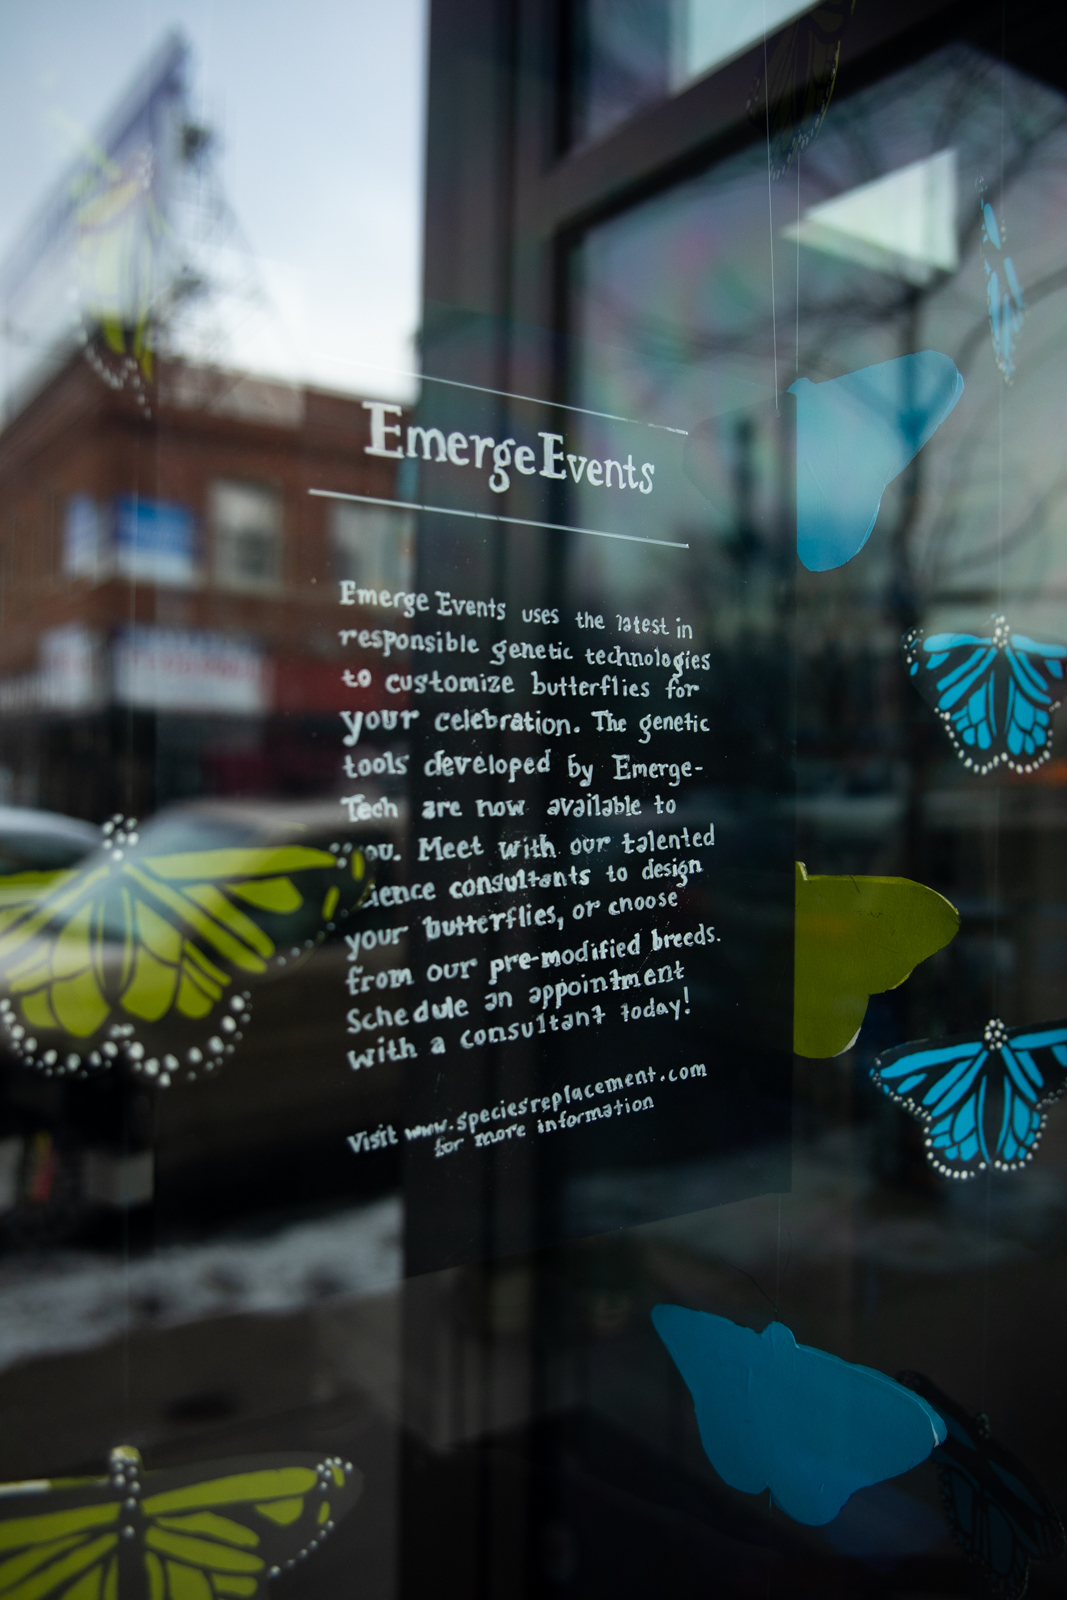 EmergeEvents
Emerge Events uses the latest in
responsible genetic technologies
to customize butterflies for
your celebration. The genetic
tools developed by Emerge-
Tech are now available to
you. Meet with our talented
consultants to design
your butterflies, or choose
from our pre-modified breeds.
Schedule an appointment
with a consultant today!
Visit www.speciesreplacement.com
for more information